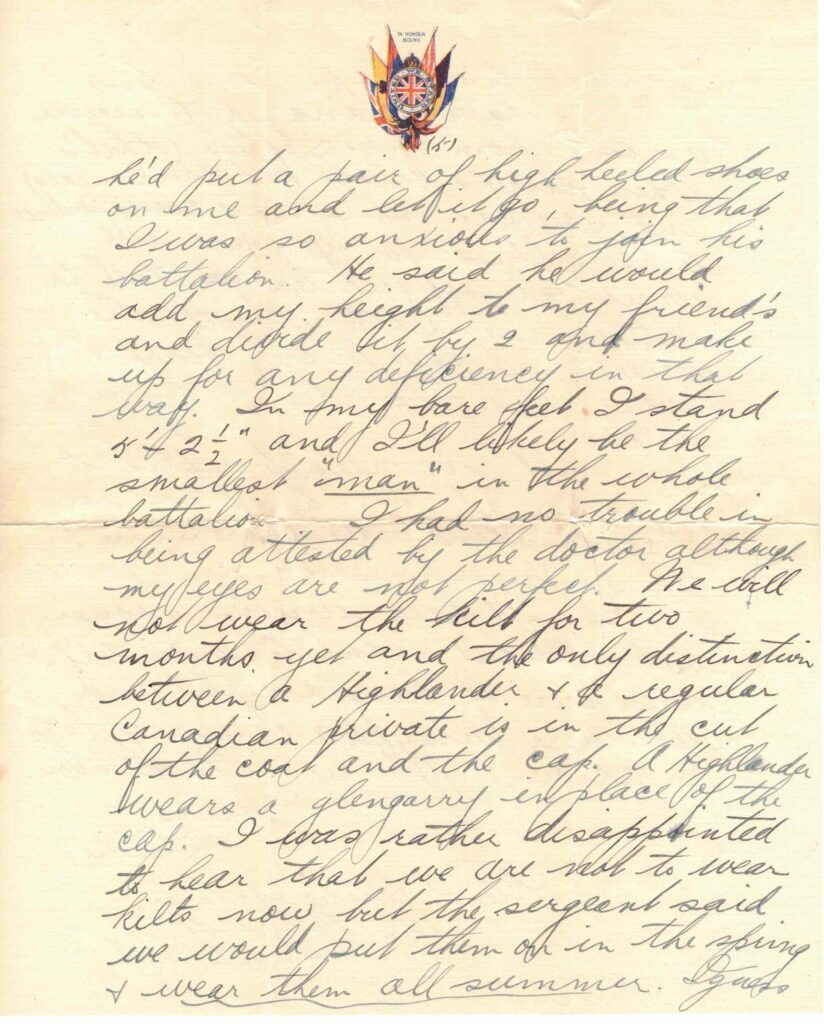 IN HONOUR
BOUND
(5)
he'd put a pair of high heeled shoes
on me and let it go, being that
I was so anxious to join his
battalion. He said he would
add my height to my friend's
and divide it by 2 and make
up for any deficiency in that
way. In my bare feet I stand
5' - 2 1/2" and I'll likely be the
smallest "man" in the whole
battalion. I had no trouble in
being attested by the doctor although
my eyes are not perfect. We will
not wear the kilt for two
months yet and the only distinction
between a Highlander & a regular
Canadian private is in the cut
of the coat and the cap. A Highlander
wears a glengarry in place of the
cap. I was rather disappointed
to hear that we are not to wear
kilts now but the sergeant said
we would put them on in the spring
& wear them all summer. I guess